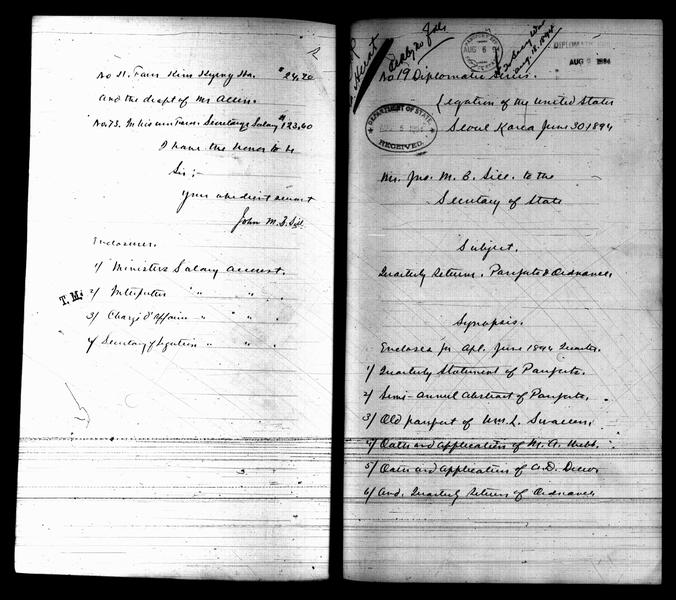 2
No 11. Favr Kim Kyeng Ha. $24.20
and the dispt of Mr Allen.
No. 73. In his own Favr. Secretary's Salary $123.60
I have the honor to be
Sir;-
Your obedient servant
John M. B. Sill
Enclosures.
1/ Ministers Salary account.
T. M. 2/ Interpreter " " .
3/ Chargé d'Affaires " " .
4/ Secretary of Legation " " .
AUG 6
DIPLOMATIC
AUG 1894
Aug. 18. 1894
No 19 Diplomatic Series.
Legation of the United States
Seoul Korea June 30 1894
DEPARTMENT OF STATE
AUG 5 1894
RECEIVED.
Mr. Jno. M. B. Sill. to the
Secretary of State
Subject.
Quarterly Returns. Passports & Ordnance.
Synopsis.
Encloses for Apl. June 1894 Quarter.
1/ Quarterly Statement of Passports.
2/ Semi-annual Abstract of Passports.
3/ Old passport of Wm L. Swallen
4/ Oaths and application of
5/ Oaths and application of A. D. Drew
6/ And. Quarterly Return of Ordnance